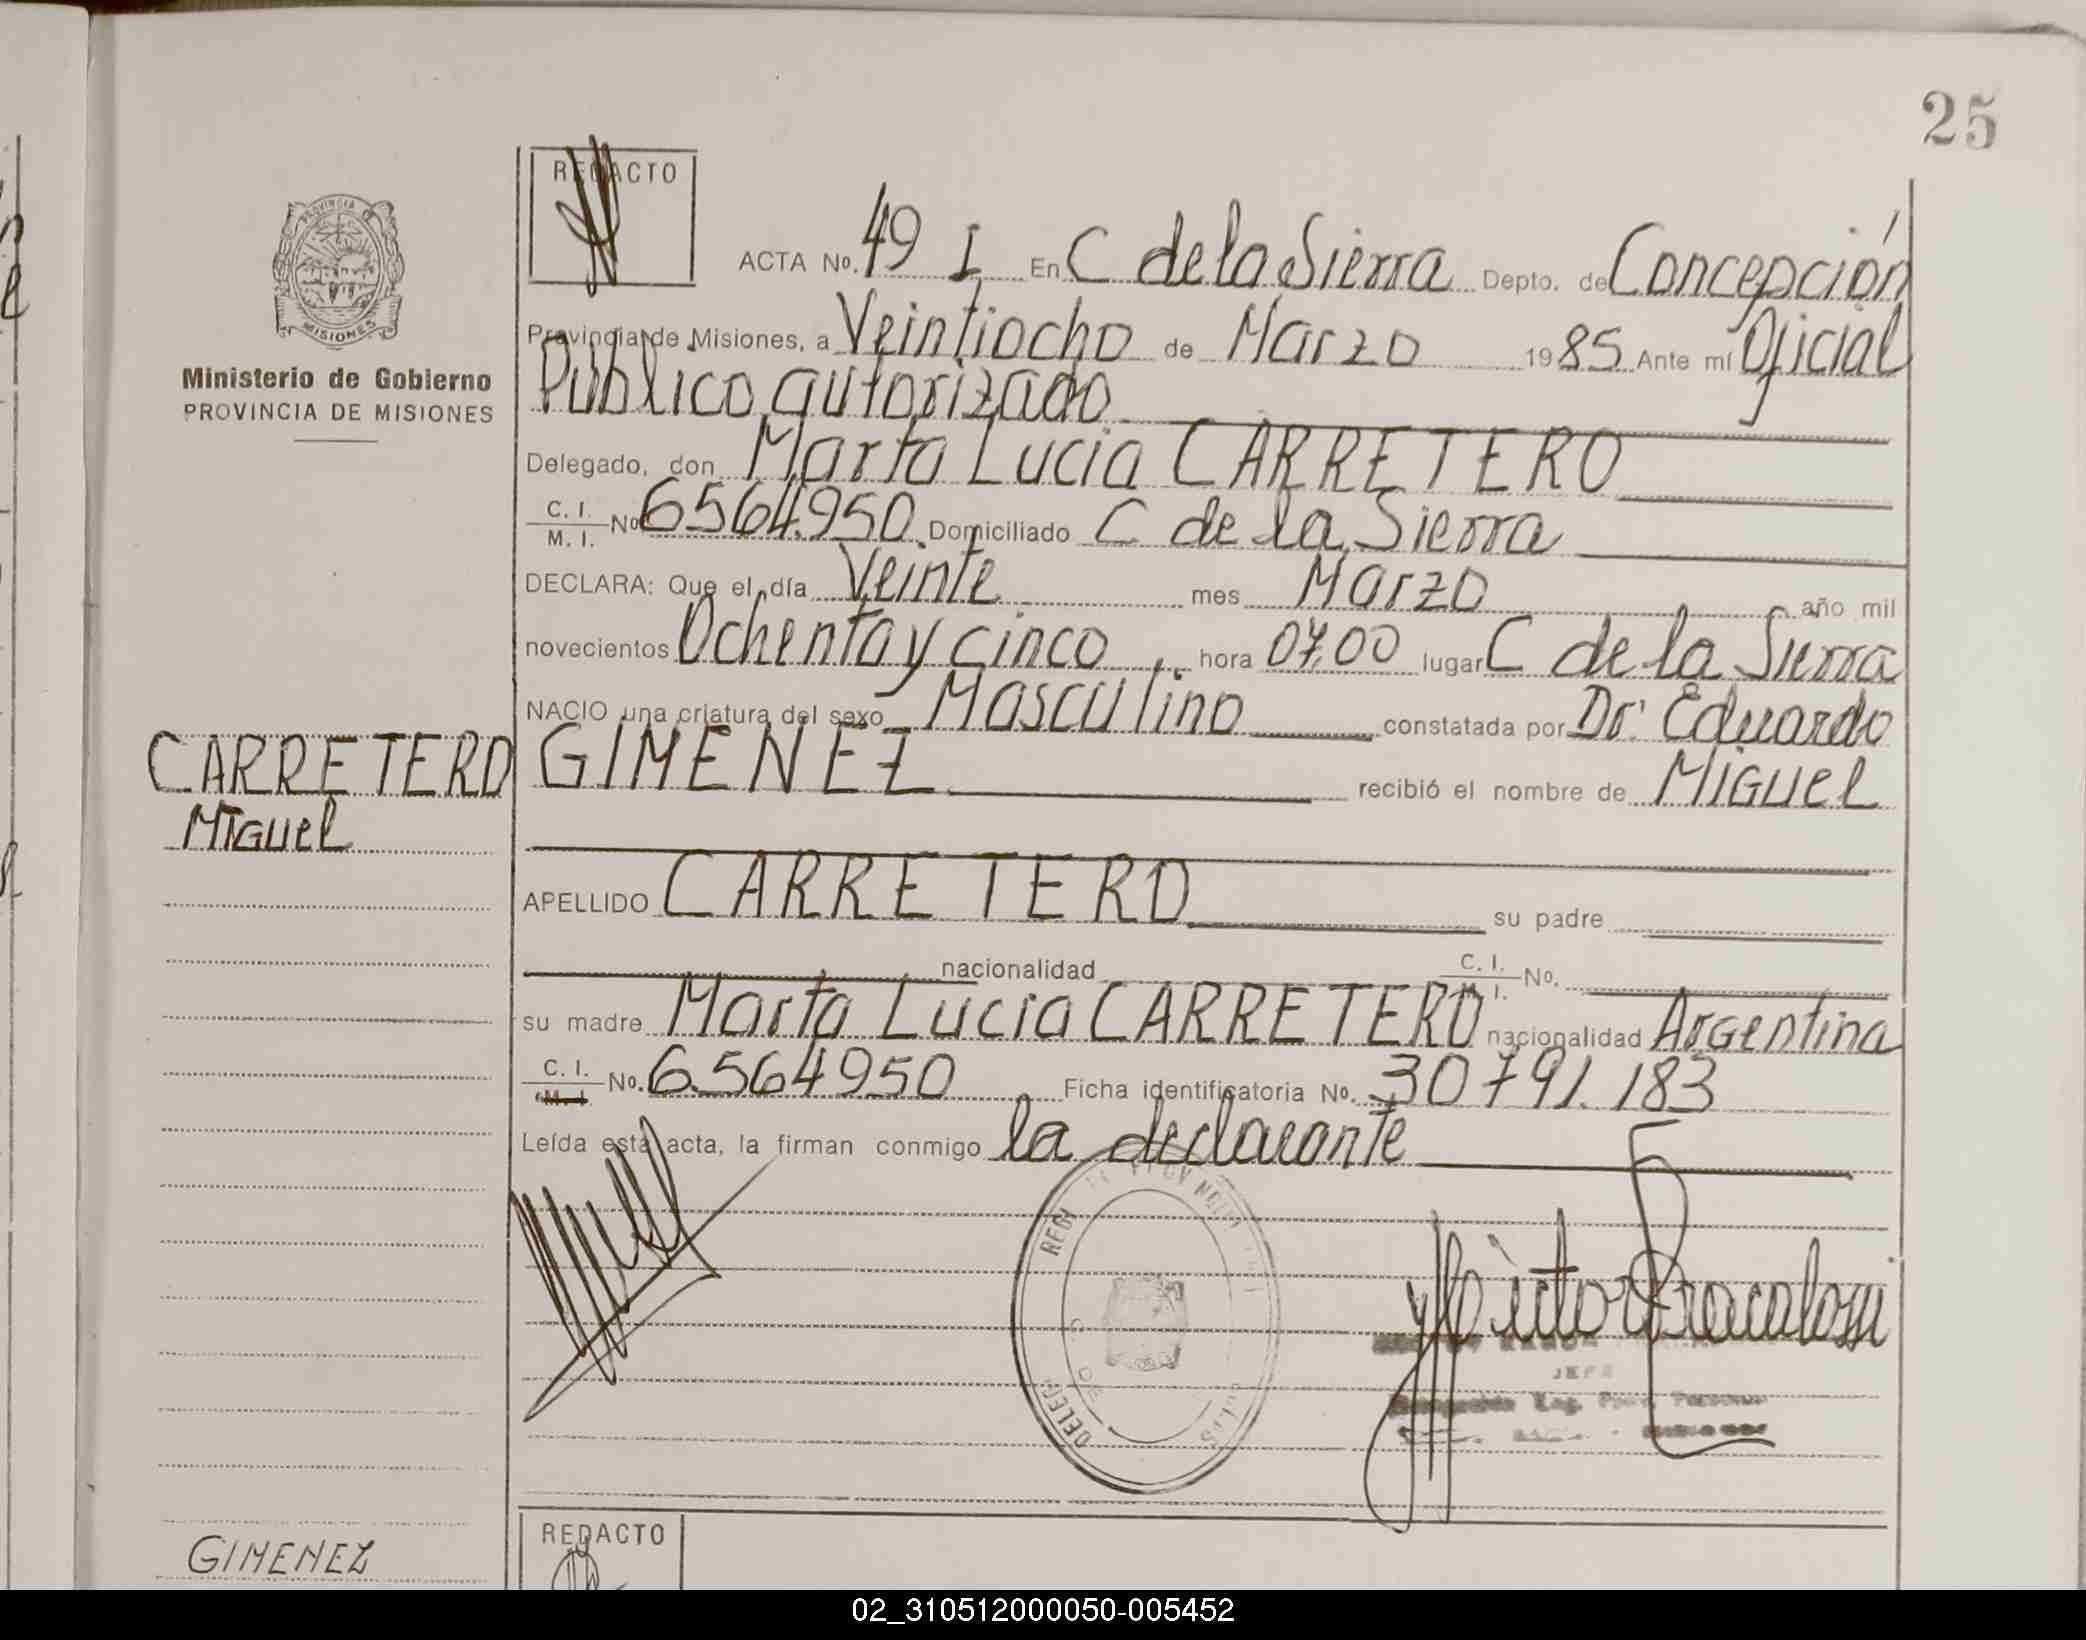 25
REDACTO
PROVINCIA DE
MISIONES
Ministerio de Gobierno
PROVINCIA DE MISIONES
ACTA No. 49 I En C de la Sierra Depto. de Concepción
Provincia de Misiones, a Veintiocho de Marzo 1985 Ante mí Oficial
Público autorizado
Delegado, don Marta Lucia CARRETERO
C. I. / M. I. No 6564.950 Domiciliado C de la Sierra
DECLARA: Que el día Veinte mes Marzo año mil
novecientos Ochenta y cinco hora 07,00 lugar C de la Sierra
NACIO una criatura del sexo Masculino constatada por Dr. Eduardo
GIMENEZ recibió el nombre de MIGUEL
CARRETERO
MIGUEL
APELLIDO CARRETERO su padre
nacionalidad C. I. / M. I. No.
su madre Marta Lucia CARRETERO nacionalidad Argentina
C. I. / M. I. No. 6.564950 Ficha identificatoria No. 30791.183
Leída esta acta, la firman conmigo la declarante
JEFE
REDACTO
GIMENEZ
02_310512000050-005452